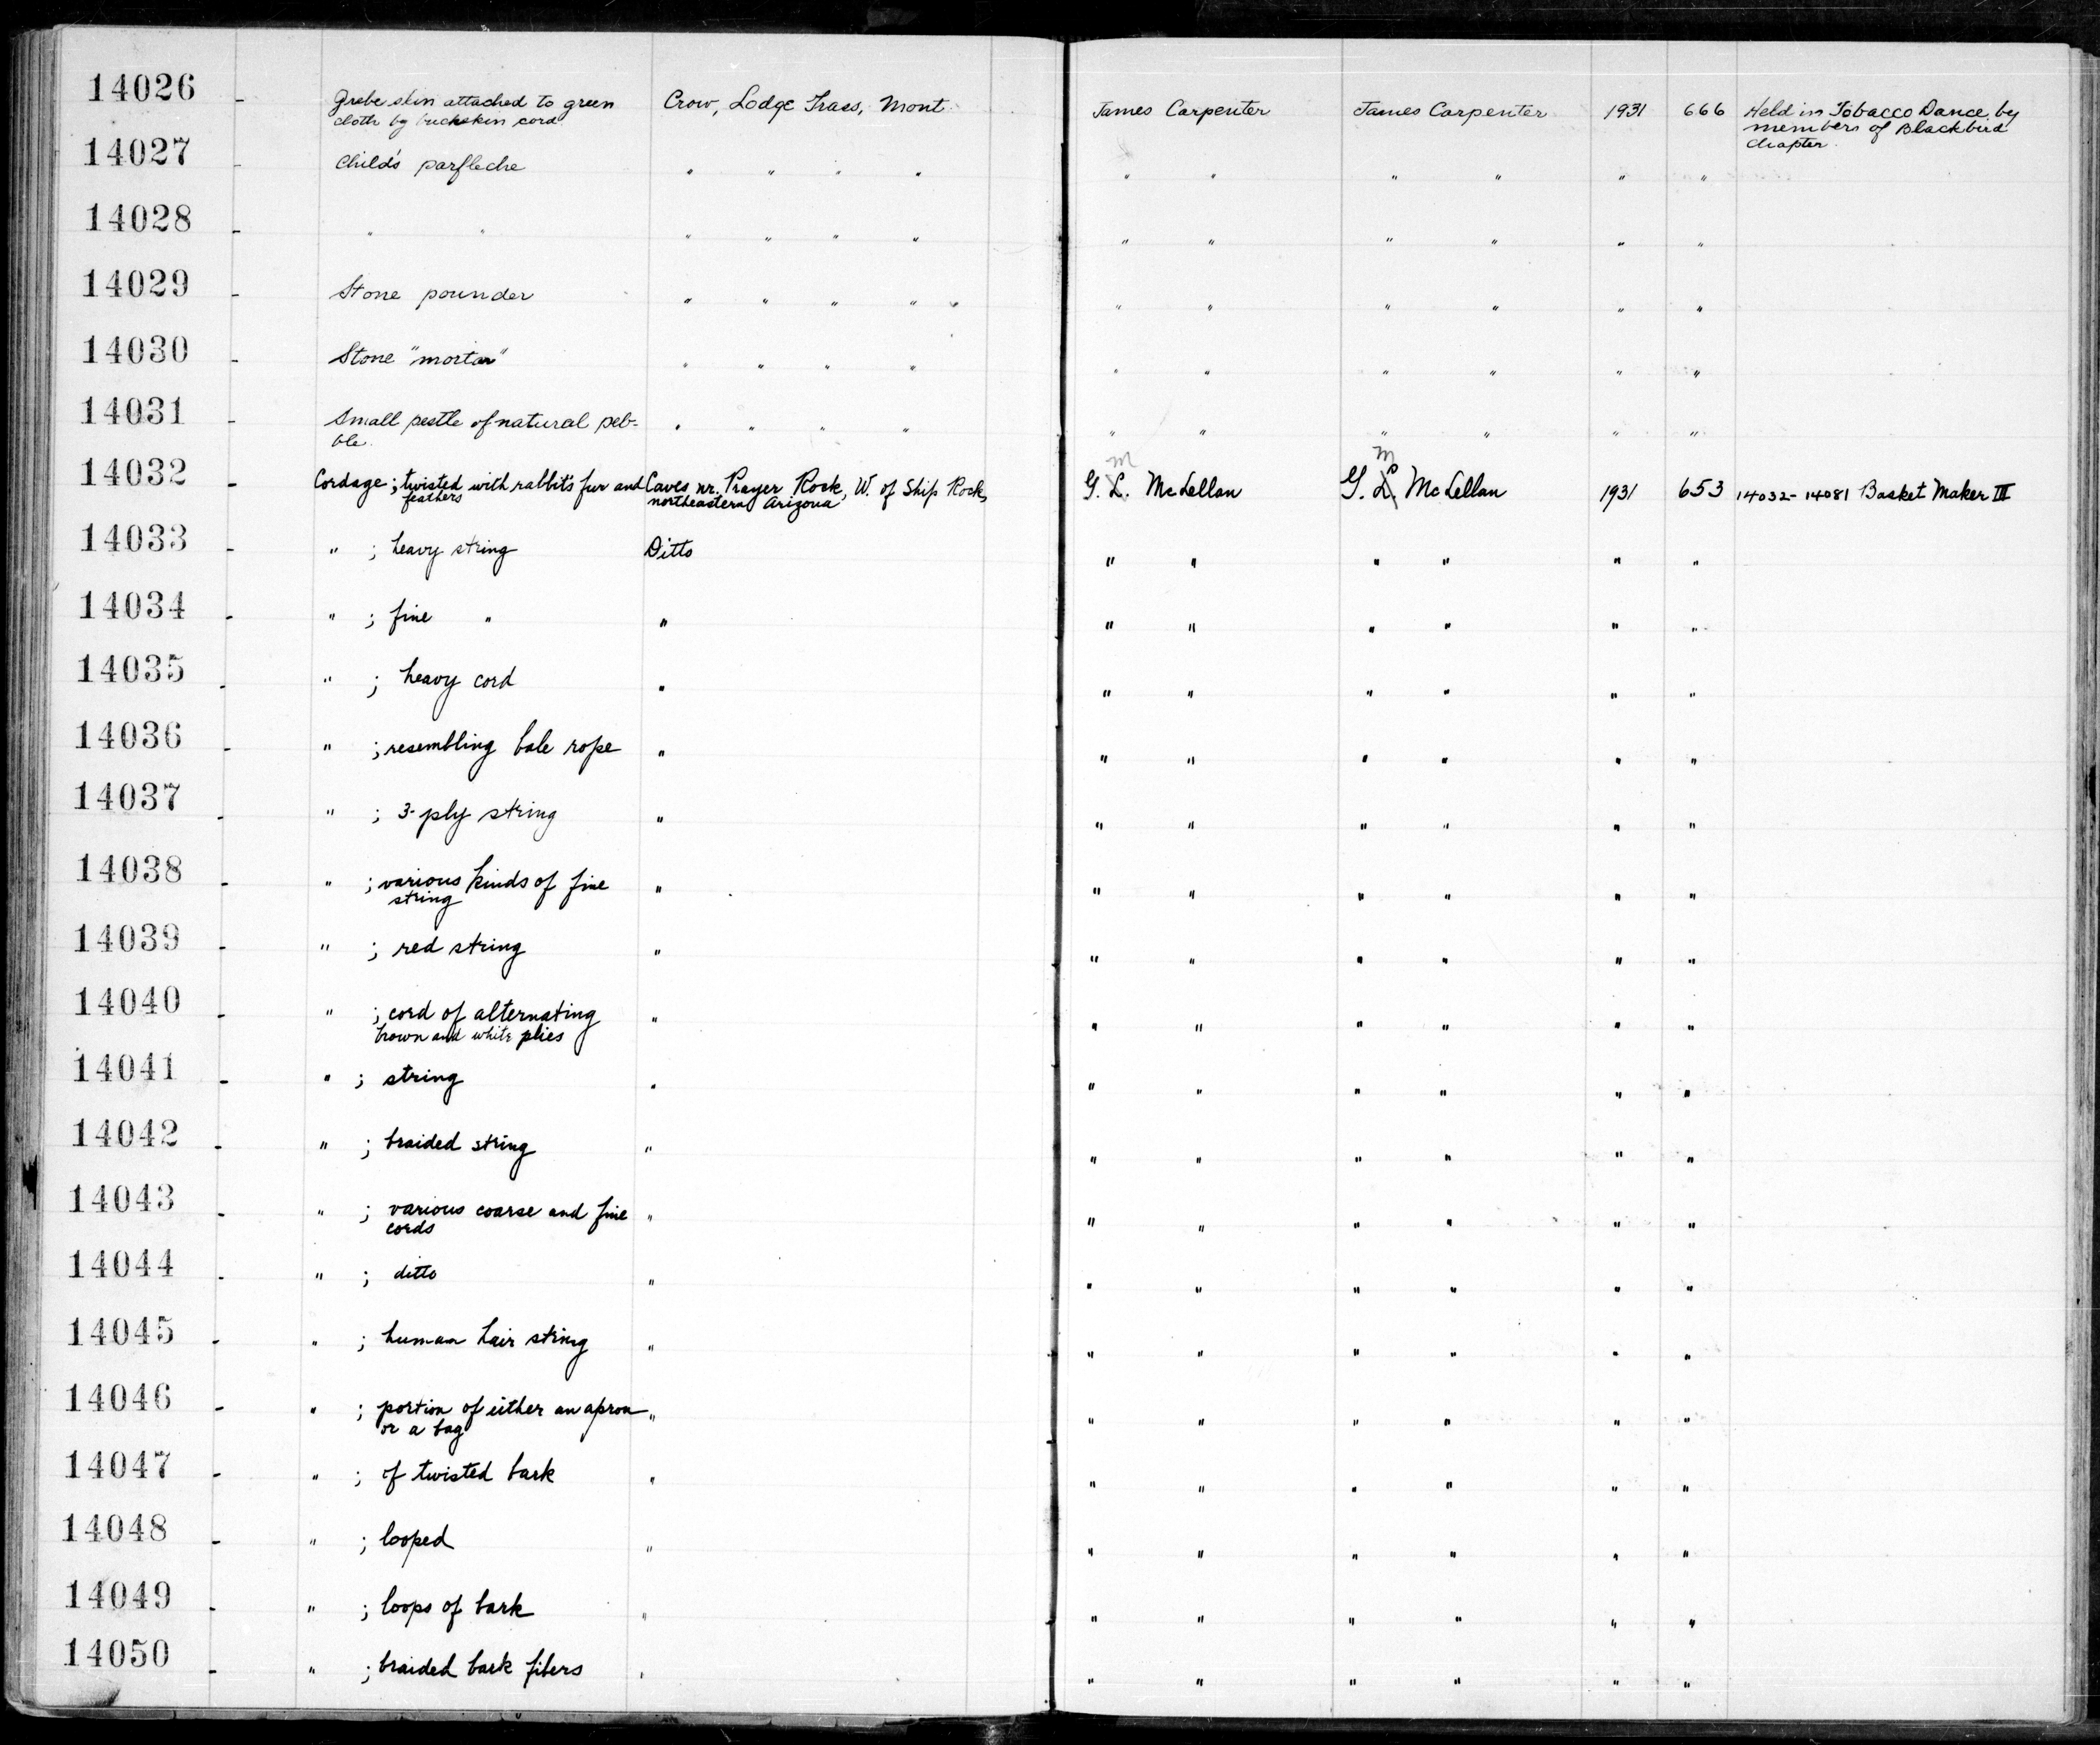 14026 - Grebe skin attached to green Crow, Lodge Grass, Mont. James Carpenter James Carpenter 1931 666 Held in Tobacco Dance by
cloth by buckskin cord. members of Blackbird
chapter.
14027 - Child's parfleche " " " " " " " " " "
14028 - " " " " " " " " " " " "
14029 - Stone pounder " " " " " " " " " "
14030 - Stone "mortar" " " " " " " " " " "
14031 - Small pestle of natural peb- " " " " " " " " " "
ble.
M M
14032 - Cordage; twisted with rabbit's fur and Caves nr. Prayer Rock, W. of Ship Rock, G. L. McLellan G. L. McLellan 1931 653 14032-14081 Basket Maker III
feathers northeastern Arizona
14033 - " ; heavy string Ditto " " " " " "
14034 - " ; fine " " " " " " " "
14035 - " ; heavy cord " " " " " " "
14036 - " ; resembling bale rope " " " " " " "
14037 - " ; 3-ply string " " " " " " "
14038 - " ; various kinds of fine " " " " " " "
string
14039 - " ; red string " " " " " " "
14040 - " ; cord of alternating " " " " " " "
brown and white plies
14041 - " ; string " " " " " " "
14042 - " ; braided string " " " " " " "
14043 - " ; various coarse and fine " " " " " " "
cords
14044 - " ; ditto " " " " " " "
14045 - " ; human hair string " " " " " " "
14046 - " ; portion of either an apron " " " " " " "
or a bag
14047 - " ; of twisted bark " " " " " " "
14048 - " ; looped " " " " " " "
14049 - " ; loops of bark " " " " " " "
14050 - " ; braided bark fibers " " " " " " "